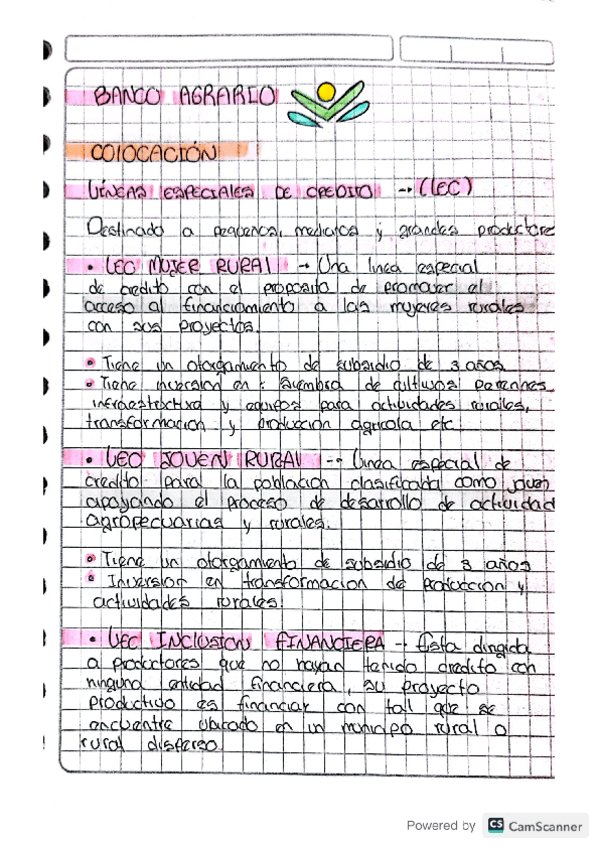 BANCO AGRARIO
COlOCACIÓN
LÍNEAS ESPECIALES DE CREDITO → (LEC)
Destinado a pequenos, medianos y grandes productore
• LEC MUJER RURAl → Una linea especial
de credito con el proposito de promover el
acceso al financiamiento a las mujeres rurales
con sus proyectos.
• Tiene un otorgamiento de subsidio de 3 años
• Tiene inversion en : Siembra de cultivos perennes
infraestructura y equipos para actividades rurales,
transformacion y producción agricola etc.
• LEC JOVEN RURAl → Linea especial de
credito para la población clasificada como joven
apoyando el proceso de desarrollo de actividad
agropecuarias y rurales.
• Tiene un otorgamiento de subsidio de 3 años
• Inversion en transformacion de produccion y
actividades rurales.
• LEC INCLUSION FINANCIERA → Esta dirigida
a productores que no hayan tenido credito con
ninguna entidad financiera, su proyecto
productivo es financiar con tal que se
encuentre ubicado en un municipo rural o
rural disperso
Powered by CS CamScanner